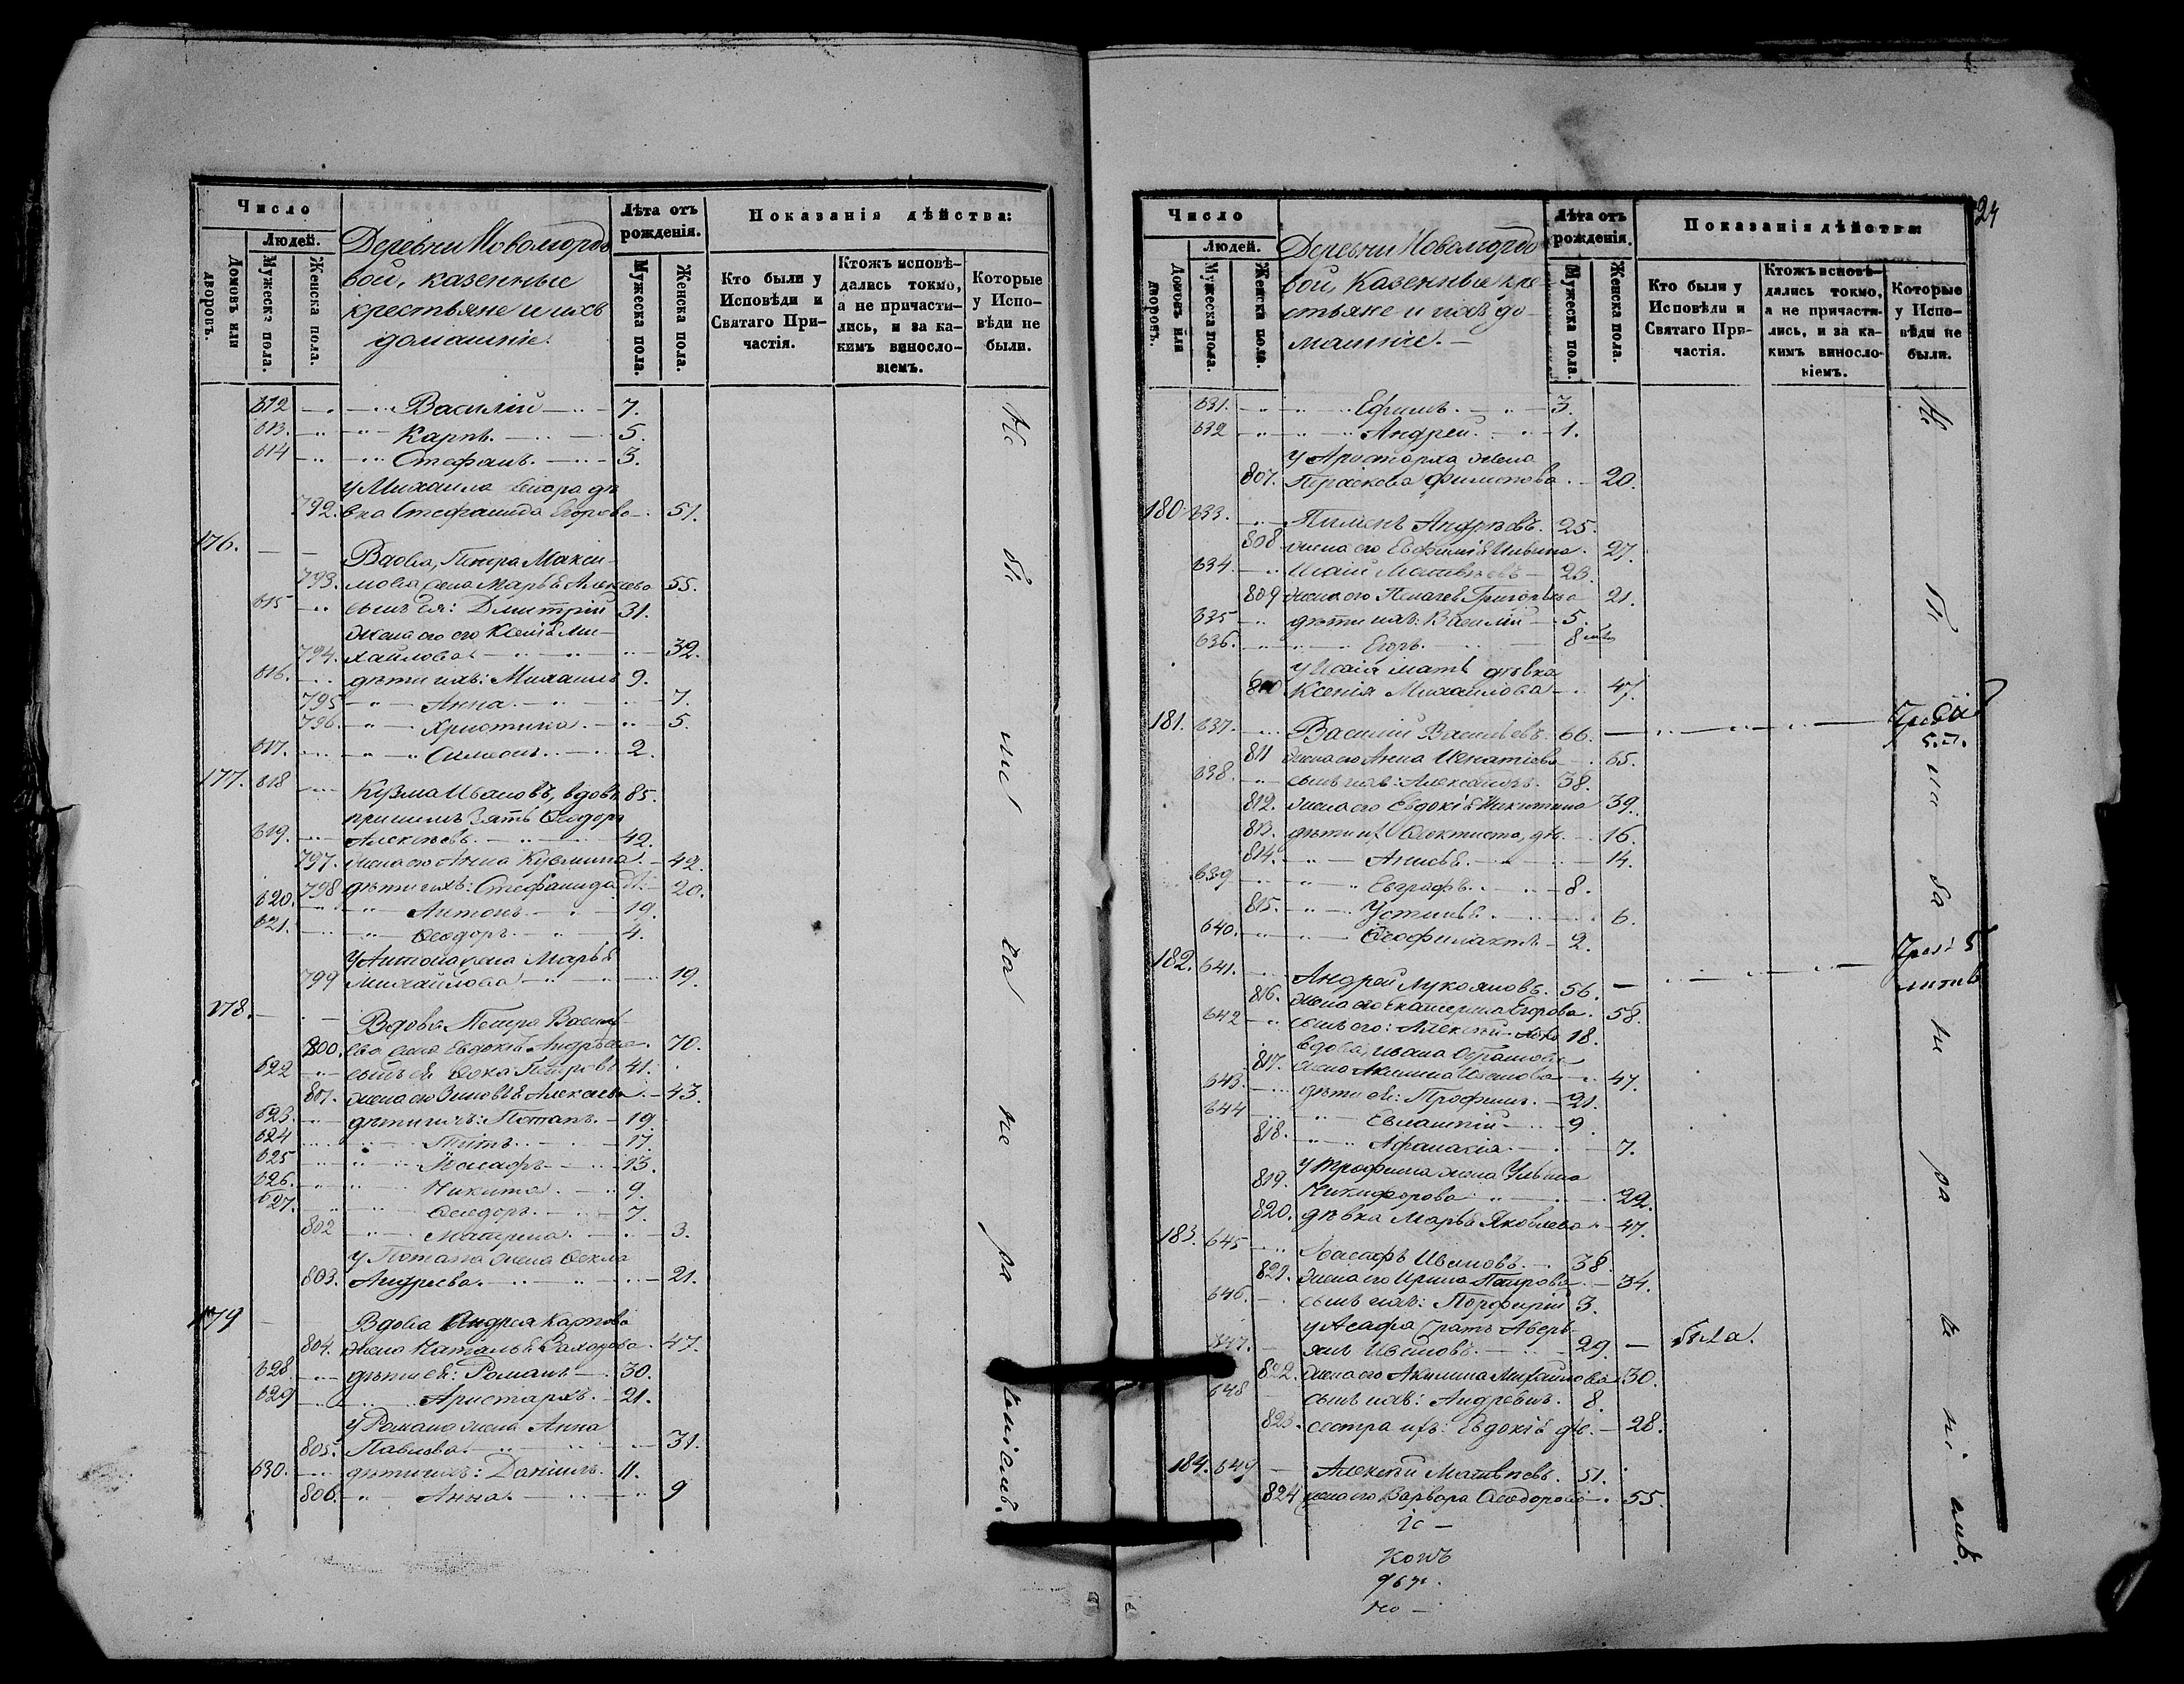 Число
Людей.
Домовъ или дворовъ.
Мужеска пола.
Женска пола.
Деревни Новомордо
вой, казенные
крестьяне и ихъ
домашніе.
Лѣта отъ рожденія.
Мужеска пола.
Женска пола.
Показанія дѣйства:
Кто были у Исповѣди и Святаго Причастія.
Ктожъ исповѣ-
дались токмо,
а не причасти-
лись, и за ка-
кимъ винослo-
віемъ.
Которые
у Испо-
вѣди не
были.
612 Василій 7.
613. Карпъ. 5.
614 Стефанъ. 3.
У Михаила сестра дѣ
792. вка Стефанида Егорова 51.
176. Вдова, Петра Макси-
793. мова жена Марья Алексѣева 55.
615 сынъ ея: Дмитрій 31.
жена его Ксенія Ми-
794. хайлова 32.
616. дѣти ихъ: Михаилъ 9.
795 Анна 7.
796. Христина 5.
617. Симеонъ 2.
177. 618 Кузма Ивановъ, вдовъ 85.
пріемышъ зять Ѳеодоръ
619. Алексѣевъ 42.
797. жена его Анна Кузмина 42.
798 дѣти ихъ: Стефанида 20.
620. Антонъ 19.
621. Ѳеодоръ 4.
У Антона жена Марья
799 Михайлова 19.
178. Вдова Петра Василь
800. ева жена Евдокія Андрѣева 70.
622 сынъ ея Ѳока Петровъ 41.
801. жена его Зиновья Алексѣева 43.
623. дѣти ихъ: Потапъ 19.
624 Титъ 17.
625 Іоасафъ 13.
626. Никита 9.
627. Ѳеодоръ 7.
802 Матрена 3.
У Потапа жена Ѳекла
803. Андреева 21.
179 Вдова Андрея Карпова
804. жена Наталья Захарова 47.
628 дѣти ея: Романъ 30.
629 Аристархъ 21.
У Романа жена Анна
805. Павлова 31.
630. дѣти ихъ: Даніилъ 11.
806. Анна 9
Не бы ли за не ра чені емъ.
24
Число
Людей.
Домовъ или дворовъ.
Мужеска пола.
Женска пола.
Деревни Новомордо
вой, Казенные кре
стьяне и ихъ до-
машніе.
Лѣта отъ рожденія.
Мужеска пола.
Женска пола.
Показанія дѣйства:
Кто были у Исповѣди и Святаго Причастія.
Ктожъ исповѣ-
дались токмо,
а не причасти-
лись, и за ка-
кимъ винослo-
віемъ.
Которые
у Испо-
вѣди не
были.
631. Ефимъ 3.
632 Андрей 1.
У Аристарха жена
807. Параскева Филипова 20.
180. 633. Пименъ Андрѣевъ 25.
808 жена его Евфимія Ильина 27.
634 Исаій Матвѣевъ 23.
809 жена его Пелагея Григорьева 21.
635 дѣти ихъ: Василій 5.
636. Егоръ 8
У Исаія мать дѣвка
810 Ксенія Михайлова 47.
181. 637. Василій Васильевъ 66.
811 жена его Анна Игнатіева 65.
638. сынъ ихъ: Александръ 38.
812. жена его Евдокія Никитина 39.
813. дѣти их Ѳеоктиста, дѣв. 16.
814. Анисья 14.
639 Евграфъ 8.
815. Устинья 6.
640. Ѳеофилактъ 2.
182. 641. Андрей Лукояновъ 56.
816. жена его Екатерина Егорова 58.
642 сынъ его: Алексѣй 18.
вдова, Ивана
817. жена Акилина Иванова 47.
643. дѣти ея: Трофимъ 21.
644 Евлампій 9.
818. Афанасія 7.
У Трофима жена Ульяна
819. Никифорова 22.
820. дѣвка Марья Яковлева 47.
183. 645 Іоасафъ Ивановъ 38.
821. жена его Ирина Петрова 34.
646. сынъ ихъ: Порфирій 3.
у Асафа братъ Аверь-
647. янъ Ивановъ 29 была.
822. жена его Акилина Михайлова 30.
648 сынъ ихъ: Андреянъ 8.
823. сестра ихъ: Евдокія дѣв. 28.
184. 649 Алексѣй Матвѣевъ 51.
824 жена его Варвара Ѳеодорова 55.
Не бы ли за не ра че ні емъ.